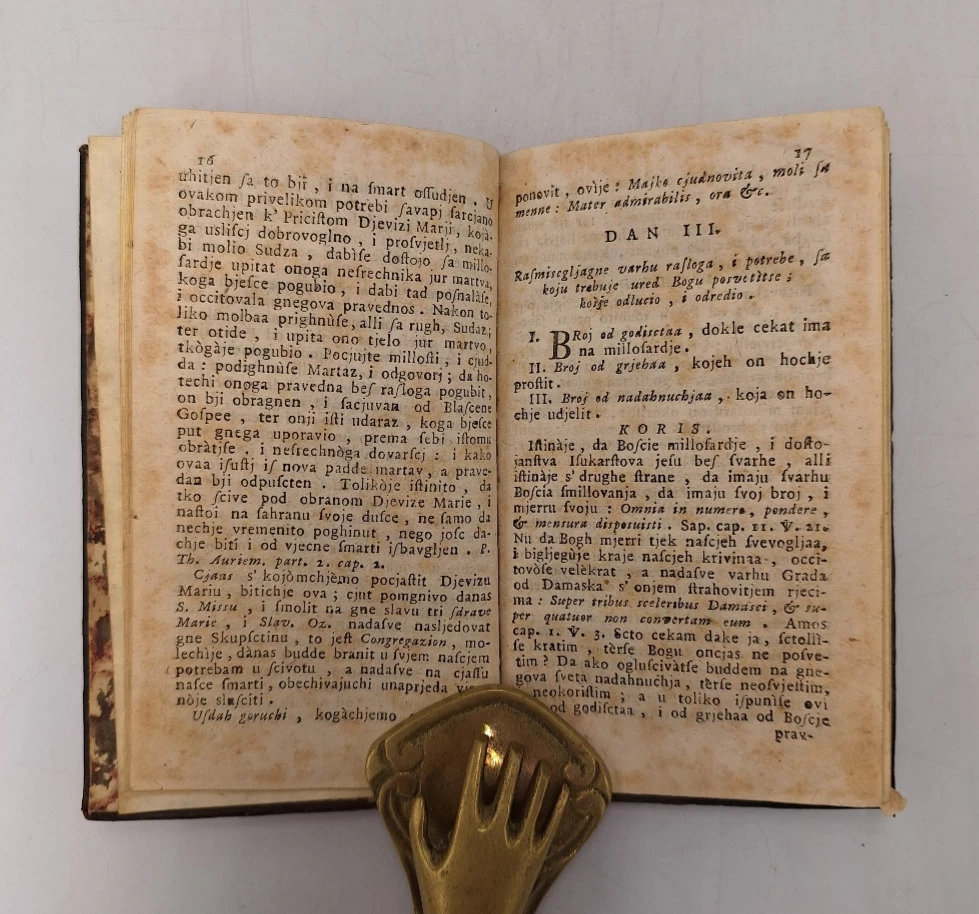 16
uhitjen ſa to bjī , i na ſmart oſſudjen . U
ovakom privelikom potrebi ſavapj ſarcjano
obrachjen k' Priciſtom Djevizi Marji, kojà-
ga usliſcj dobrovoglno , i proſvjetlj, neka-
bi molio Sudza , dabìſe doſtojo ſa millo-
ſardje upitat onoga neſrechnika jur martva,
koga bjeſce pogubio , i dabi tad poſnalàſe,
i occitovala gnegova pravednos . Nakon to-
liko molbaa prighnùſe, alli ſa rugh, Sudaz;
ter otide , i upita ono tjelo jur martvo,
tkògàje pogubio . Pocjujte milloſti , i cjud-
da : podighnùſe Martaz, i odgovorj ; da ho-
techi onoga pravedna beſ raſloga pogubit,
on bji obragnen , i ſacjuvan od Blaſcene
Goſpee , ter onji iſti udaraz , koga bjeſce
put gnega uporavio , prema ſebi iſtomu
obràtjſe , i neſrechnòga dovarſcj : i kako
ovaa iſuſtj iſ nova padde martav, a prave-
dan bji odpuſcten . Tolikòje iſtinito , da
tko ſcive pod obranom Djevize Marie , i
naſtoi na ſahranu ſvoje duſce , ne ſamo da
nechje vremenito poghinut , nego joſc da-
chje biti i od vjecne ſmarti iſbavgljen . P.
Th. Auriem. part. 2. cap. 2.
Cjans s' kojòmchjèmo pocjaſtit Djevizu
Mariu , bitichje ova ; cjut pomgnivo danas
S. Missu , i ſmolit na gne slavu tri ſdrave
Marie , i Slav. Oz. nadaſve nasljedovat
gne Skupſctinu , to jeſt Congregazion , mo-
lechìje , dànas budde branit u ſvjem naſcjem
potrebam u ſcivotu , a nadaſve na cjaſſu
naſce ſmarti , obechivajuchi unaprjeda
nòje sluſciti .
Uſdah goruchi , kogàchjemo
17
ponovit , ovìje : Majko cjudnovita , moli ſa
menne : Mater admirabilis , ora &c.
DAN III.
Raſmiscgljagne varhu raſloga , i potrebe , ſa
koju trebuje ured Bogu poſvetìtſe ;
kojìje odlucio , i odredio .
I. BRoj od godiſctaa , dokle cekat ima
na milloſardje .
II. Broj od grjehaa , kojeh on hochje
proſtit .
III. Broj od nadahnuchjaa , koja on ho-
chje udjelit .
KORIS.
Iſtinàje , da Boſcie milloſardje , i doſto-
janſtva Iſukarſtova jeſu beſ ſvarhe , alli
iſtinàje s' drughe ſtrane , da imaju ſvarhu
Boſcia ſmillovanja , da imaju ſvoj broj , i
mjerru ſvoju : Omnia in numero, pondere ,
& mensura disposuisti . Sap. cap. 11. V. 21.
Nu da Bogh mjerri tjek naſcjeh ſvevogljaa,
i bigljegùje kraje naſcjeh krivinaa , occi-
tovòſe velèkrat , a nadaſve varhu Grada
od Damaska s' onjem ſtrahovitjem rjeci-
ma : Super tribus sceleribus Damasci , & su-
per quatuor non convertam eum . Amos
cap. 1. V. 3. Scto cekam dake ja, ſctolli-
ſe kratim , tèrſe Bogu oncjas ne poſve-
tim ? Da ako ogluſcivàtſe buddem na gne-
gova ſveta nadahnuchja , tèrſe neoſvjeſtim,
neokoriſtim ; a u toliko iſpunìſe ovi
od godiſctaa , i od grjehaa od Boſcje
prav-